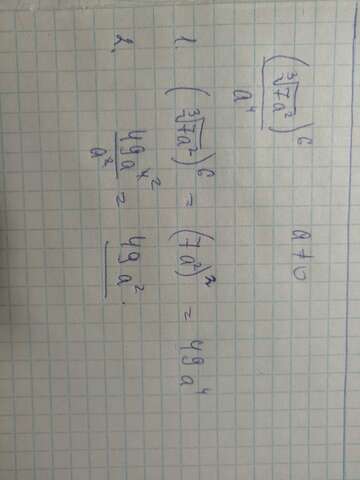 (∛7a²)⁶ / a⁴   a≠0
1. (∛7a²)⁶ = (7a²)² = 49a⁴
2. 49a⁴² / a² = 49a².